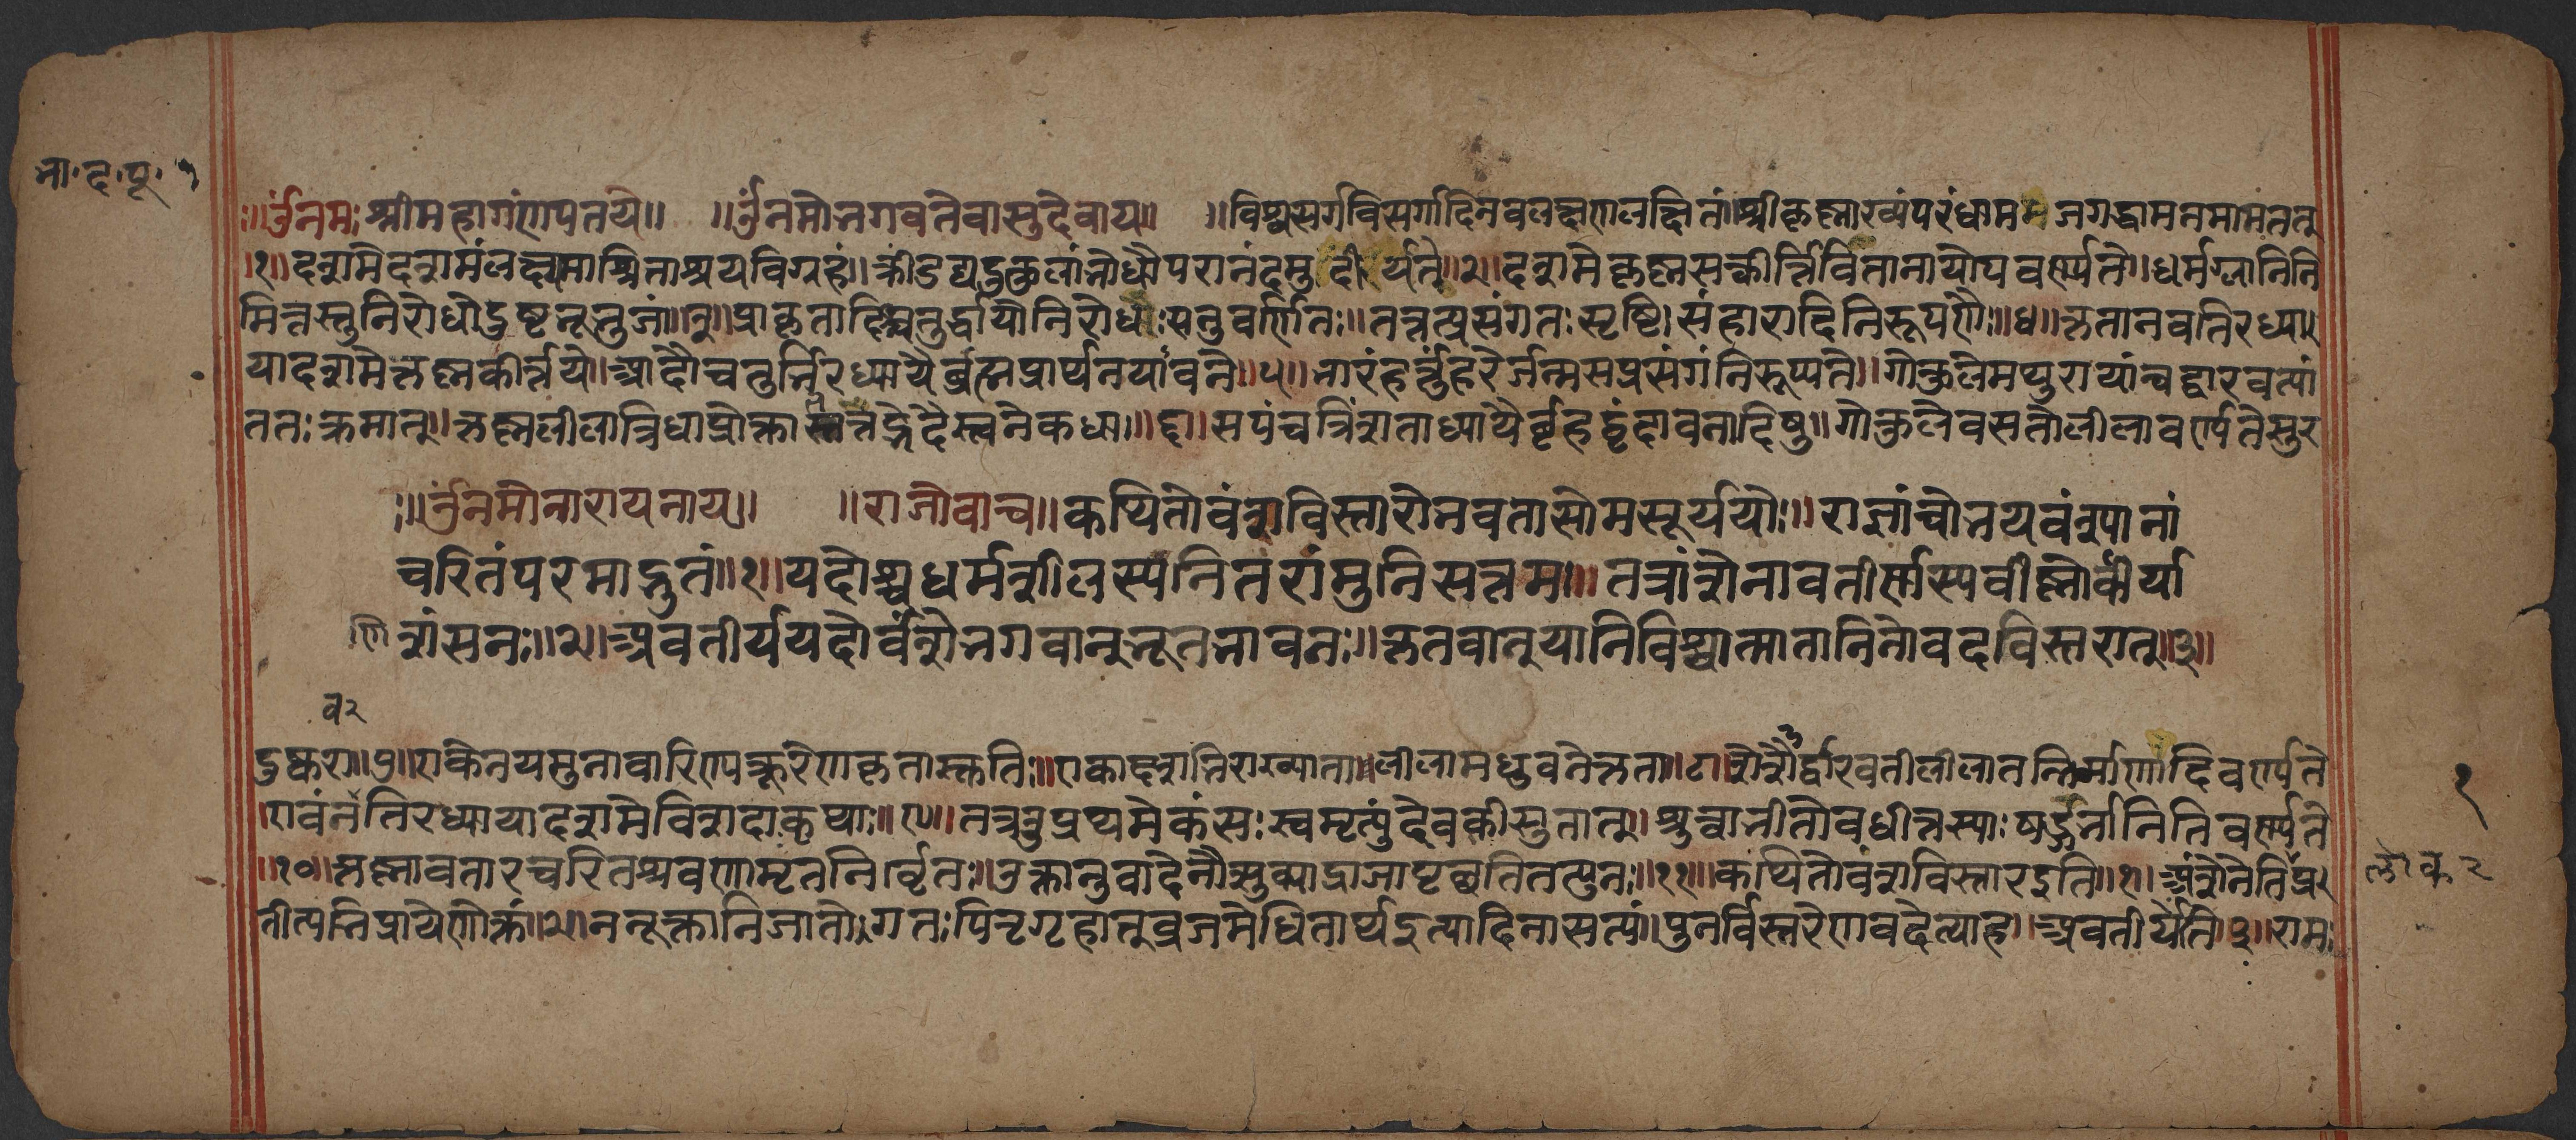 भा॰ द॰ पू॰ १
॥ॐनमः श्रीमहागंणपतये॥ ॥ॐनमोभगवतेवासुदेवाय॥ ॥विश्वसर्गविसर्गादिनवलक्षणलक्षितं॥श्रीकृष्णाख्यंपरंधाममजगद्धामनमामतत्
॥१॥दशमेदशमंलक्ष्यमाश्रिताश्रयविग्रहं॥क्रीडद्यदुकुलांभोधौपरानंदमुदीर्यते॥२॥दशमेकृष्णसत्कीर्त्तिर्वितानायोपवर्ण्यते॥धर्मग्लानिनि
मित्तस्तुनिरोधोदुष्टभूभुजां॥३॥प्राकृतादिश्चतुर्द्धायोनिरोधः सतुवर्णितः॥तत्रत्प्रसंगतः सृष्टि।संहारादिनिरूपणैः॥४॥कृतानवतिरध्या
यादशमेकृष्णकीर्त्तये॥आदौचतुर्भिरध्यायैर्ब्रह्मप्रार्थनयावने॥५॥भारंहर्त्तुंहरेर्जन्मसप्रसंगंनिरूप्यते॥गोकुलेमथुरायांचद्वारवत्यां
ततः क्रमात्॥कृष्णलीलात्रिधाप्रोक्तास्तत्तद्भेदैस्त्वनेकधा॥६॥सपंचत्रिंशताध्यायैर्वृहद्वृंदावनादिषु॥गोकुलेवसतोलीलावर्ण्यतेसुर
॥ॐनमोनारायनाय॥ ॥राजोवाच॥कथितोवंशविस्तारोभवतासोमसूर्ययोः॥राज्ञांचोभयवंशपानां
चरितंपरमाद्भुतं॥१॥यदोश्चधर्मशीलस्यनितरांमुनिसत्तम॥तत्रांशेनावतीर्णस्यवीष्णोर्वीर्या
णिशंसनः॥२॥अवतीर्ययदोर्वंशेभगवान्भूतभावनः॥कृतवान्यानिविश्वात्मातानिनोवदविस्तरात्॥३॥
वर
दुष्करा॥७॥एकेनयमुनावारिण्यक्रूरेणकृतास्तुतिः॥एकादशभिराख्यातालीलामधुवनेकृता॥८॥शेशैर्द्वारवतीलीलातन्निर्माणादिवर्ण्यते
एवंनवतिरध्यायादशमेविशदाकृथाः॥९॥तत्रतुप्रथमेकंसः स्वमृत्युंदेवकीसुतात्॥श्रुत्वाभीतोवधीत्तस्याः षड्गर्भानितिवर्ण्यते
॥१०॥कृष्णावतारचरितश्रवणामृतनिर्वृतः॥उक्तानुवादेनौत्सुक्याद्राजापृच्छतितत्पुनः॥११॥कथितोवंशविस्तारइति॥१॥अंशेनेतिप्र
तीत्यभिप्रायेणोक्तं॥२॥ननूक्तानिजातोगतः पितृगृहात्व्रजमेधितार्थइत्यादिनासत्यं॥पुनर्विस्तरेणवदेत्याह॥अवतीर्येति॥३॥राम
१